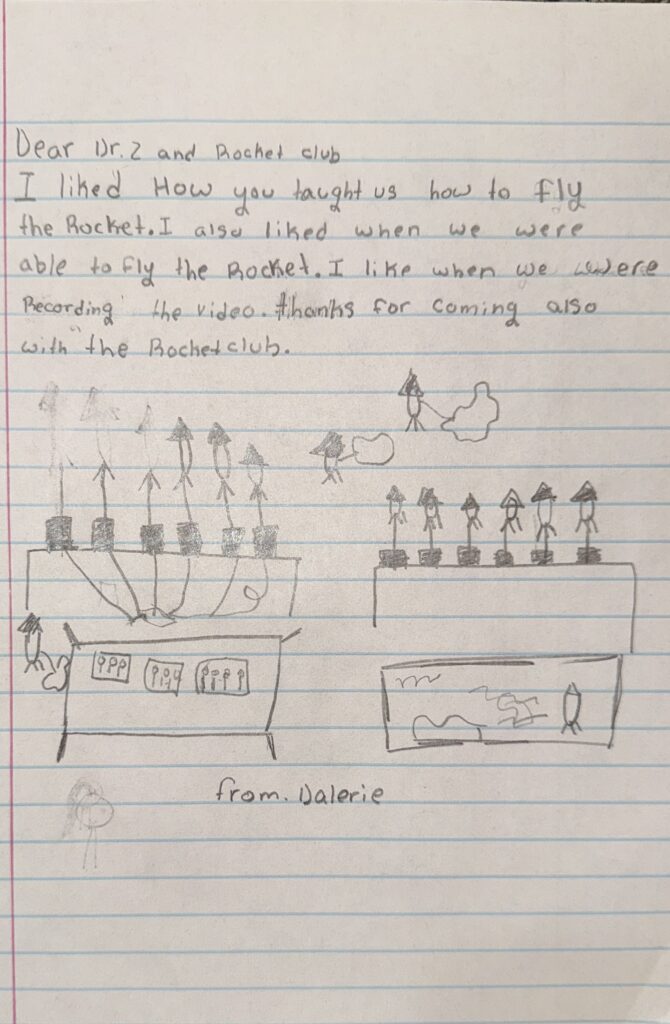 Dear Dr. Z and Rocket club
I liked How you taught us how to fly
the Rocket. I also liked when we were
able to fly the Rocket. I like when we were
Recording the video. thanks for coming also
with the Rocket club.
from. Valerie